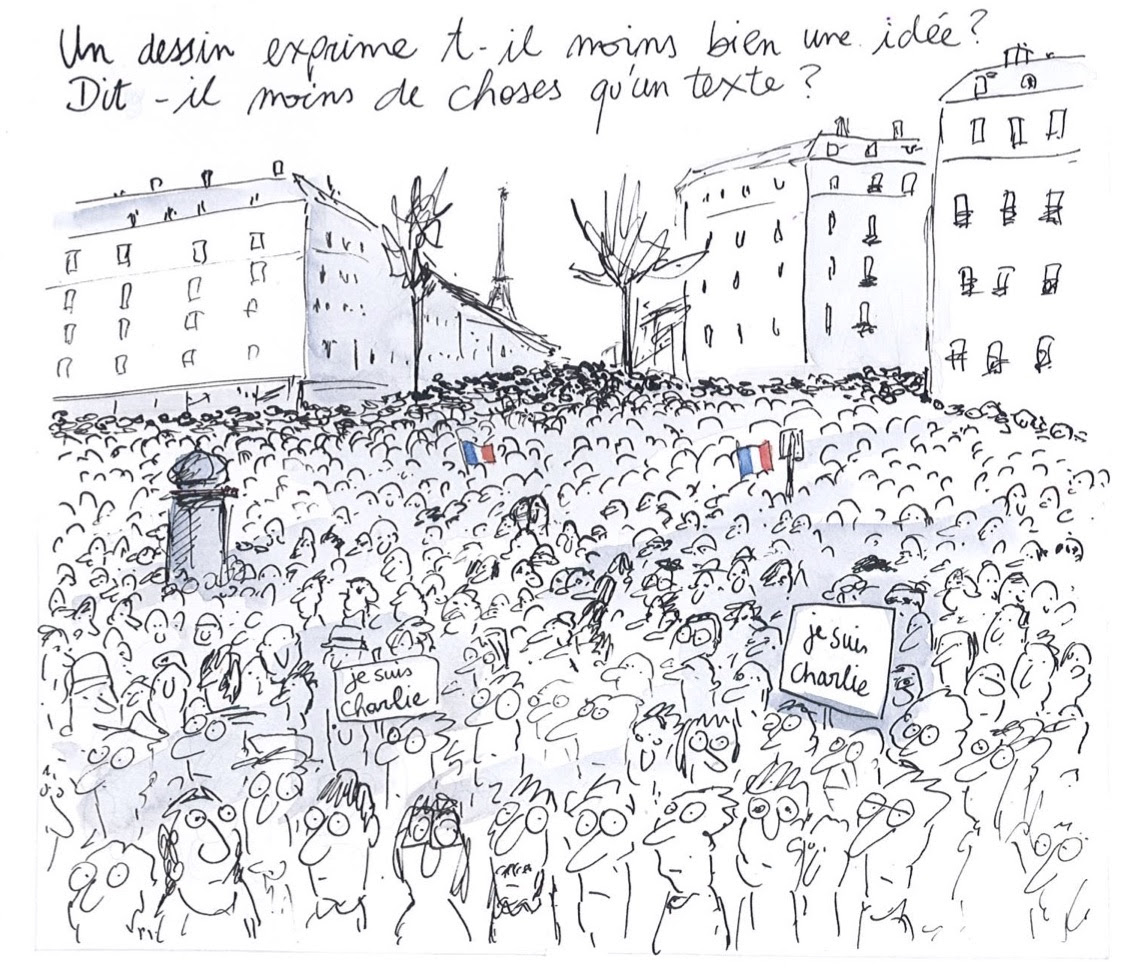 Un dessin exprime t-il moins bien une idée ?
Dit-il moins de choses qu'un texte ?
je suis
charlie
je suis
Charlie